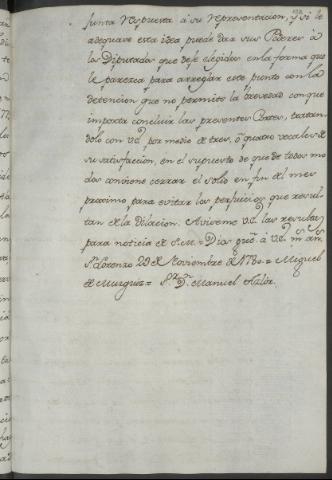 Junta respuesta à su representacion, y si le
adequare esta idea puede dar sus Poderes à
los Diputados que deje elegidos en la forma que
le parezca para arreglar este punto con la
detencion que no permite la brevedad con que
importa concluir las presentes Cortes, tratan-
dolo con V.S. por medio de tres, ó quatro vocales de
su satisfaccion, en el supuesto de que de todos mo-
dos conviene cerrar el solio en fin del mes
proximo para evitar los perjuicios que resul-
tan de la dilacion. Aviseme V.S. las resultas
para noticia de S.M. = Dios gue. à V.S. ms. as.
Sn. Lorenzo 29 de Noviembre de 1780. = Miguel
de Muzquiz = Sr. Dn. Manuel Azlor.